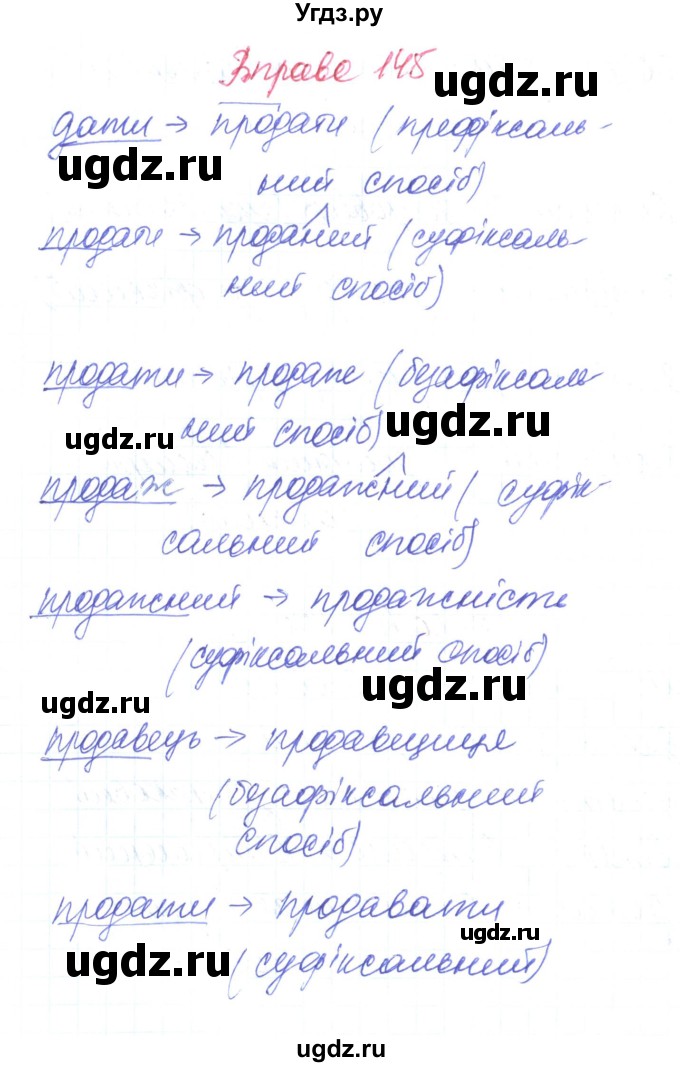 Угдз.ру
Вправа 145
ugdz.ru
дати → продати (префіксаль-
ugdz.ru
ний спосіб)
продати → проданий (суфіксаль-
ний спосіб)
продати → продаж (безафіксаль-
ugdz.ru
ний спосіб)
ugdz.ru
продаж → продажний (суфік-
сальний спосіб)
продажний → продажність
(суфіксальний спосіб)
ugdz.ru
ugdz.ru
продавець → продавщиця
(безафіксальний
спосіб)
продати → продавати
ugdz.ru
ugdz.ru
(суфіксальний)
ugdz.ru